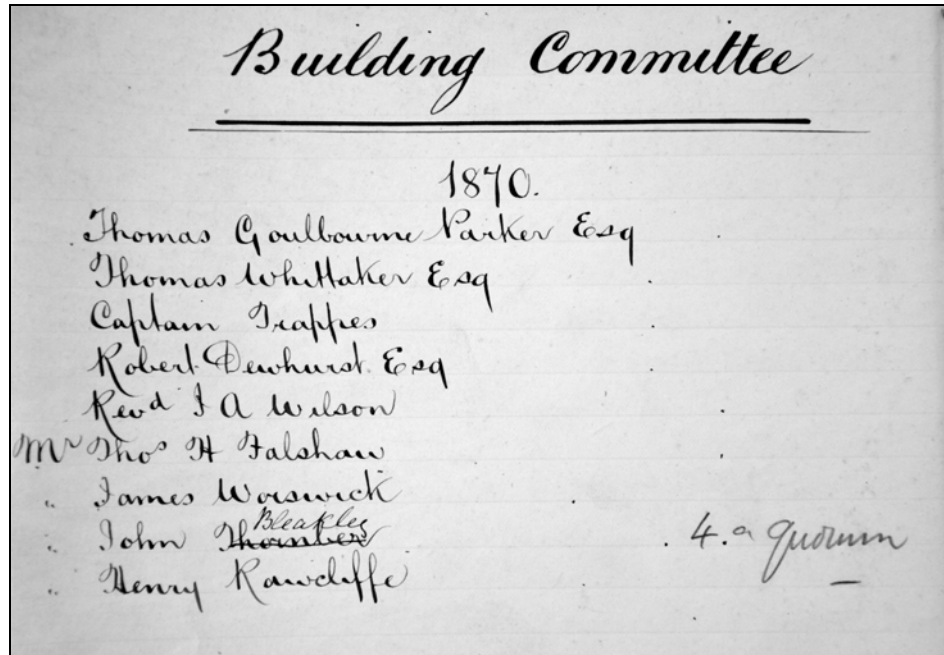 Building Committee
1870.
Thomas Goulbourne Parker Esq
Thomas Whittaker Esq
Captain Trappes
Robert Dewhurst Esq
Revd I A Wilson
Mr Thos H Falshaw
" James Worswick
Bleakley
" John Thornber 4. a quorum
" Henry Rawcliffe